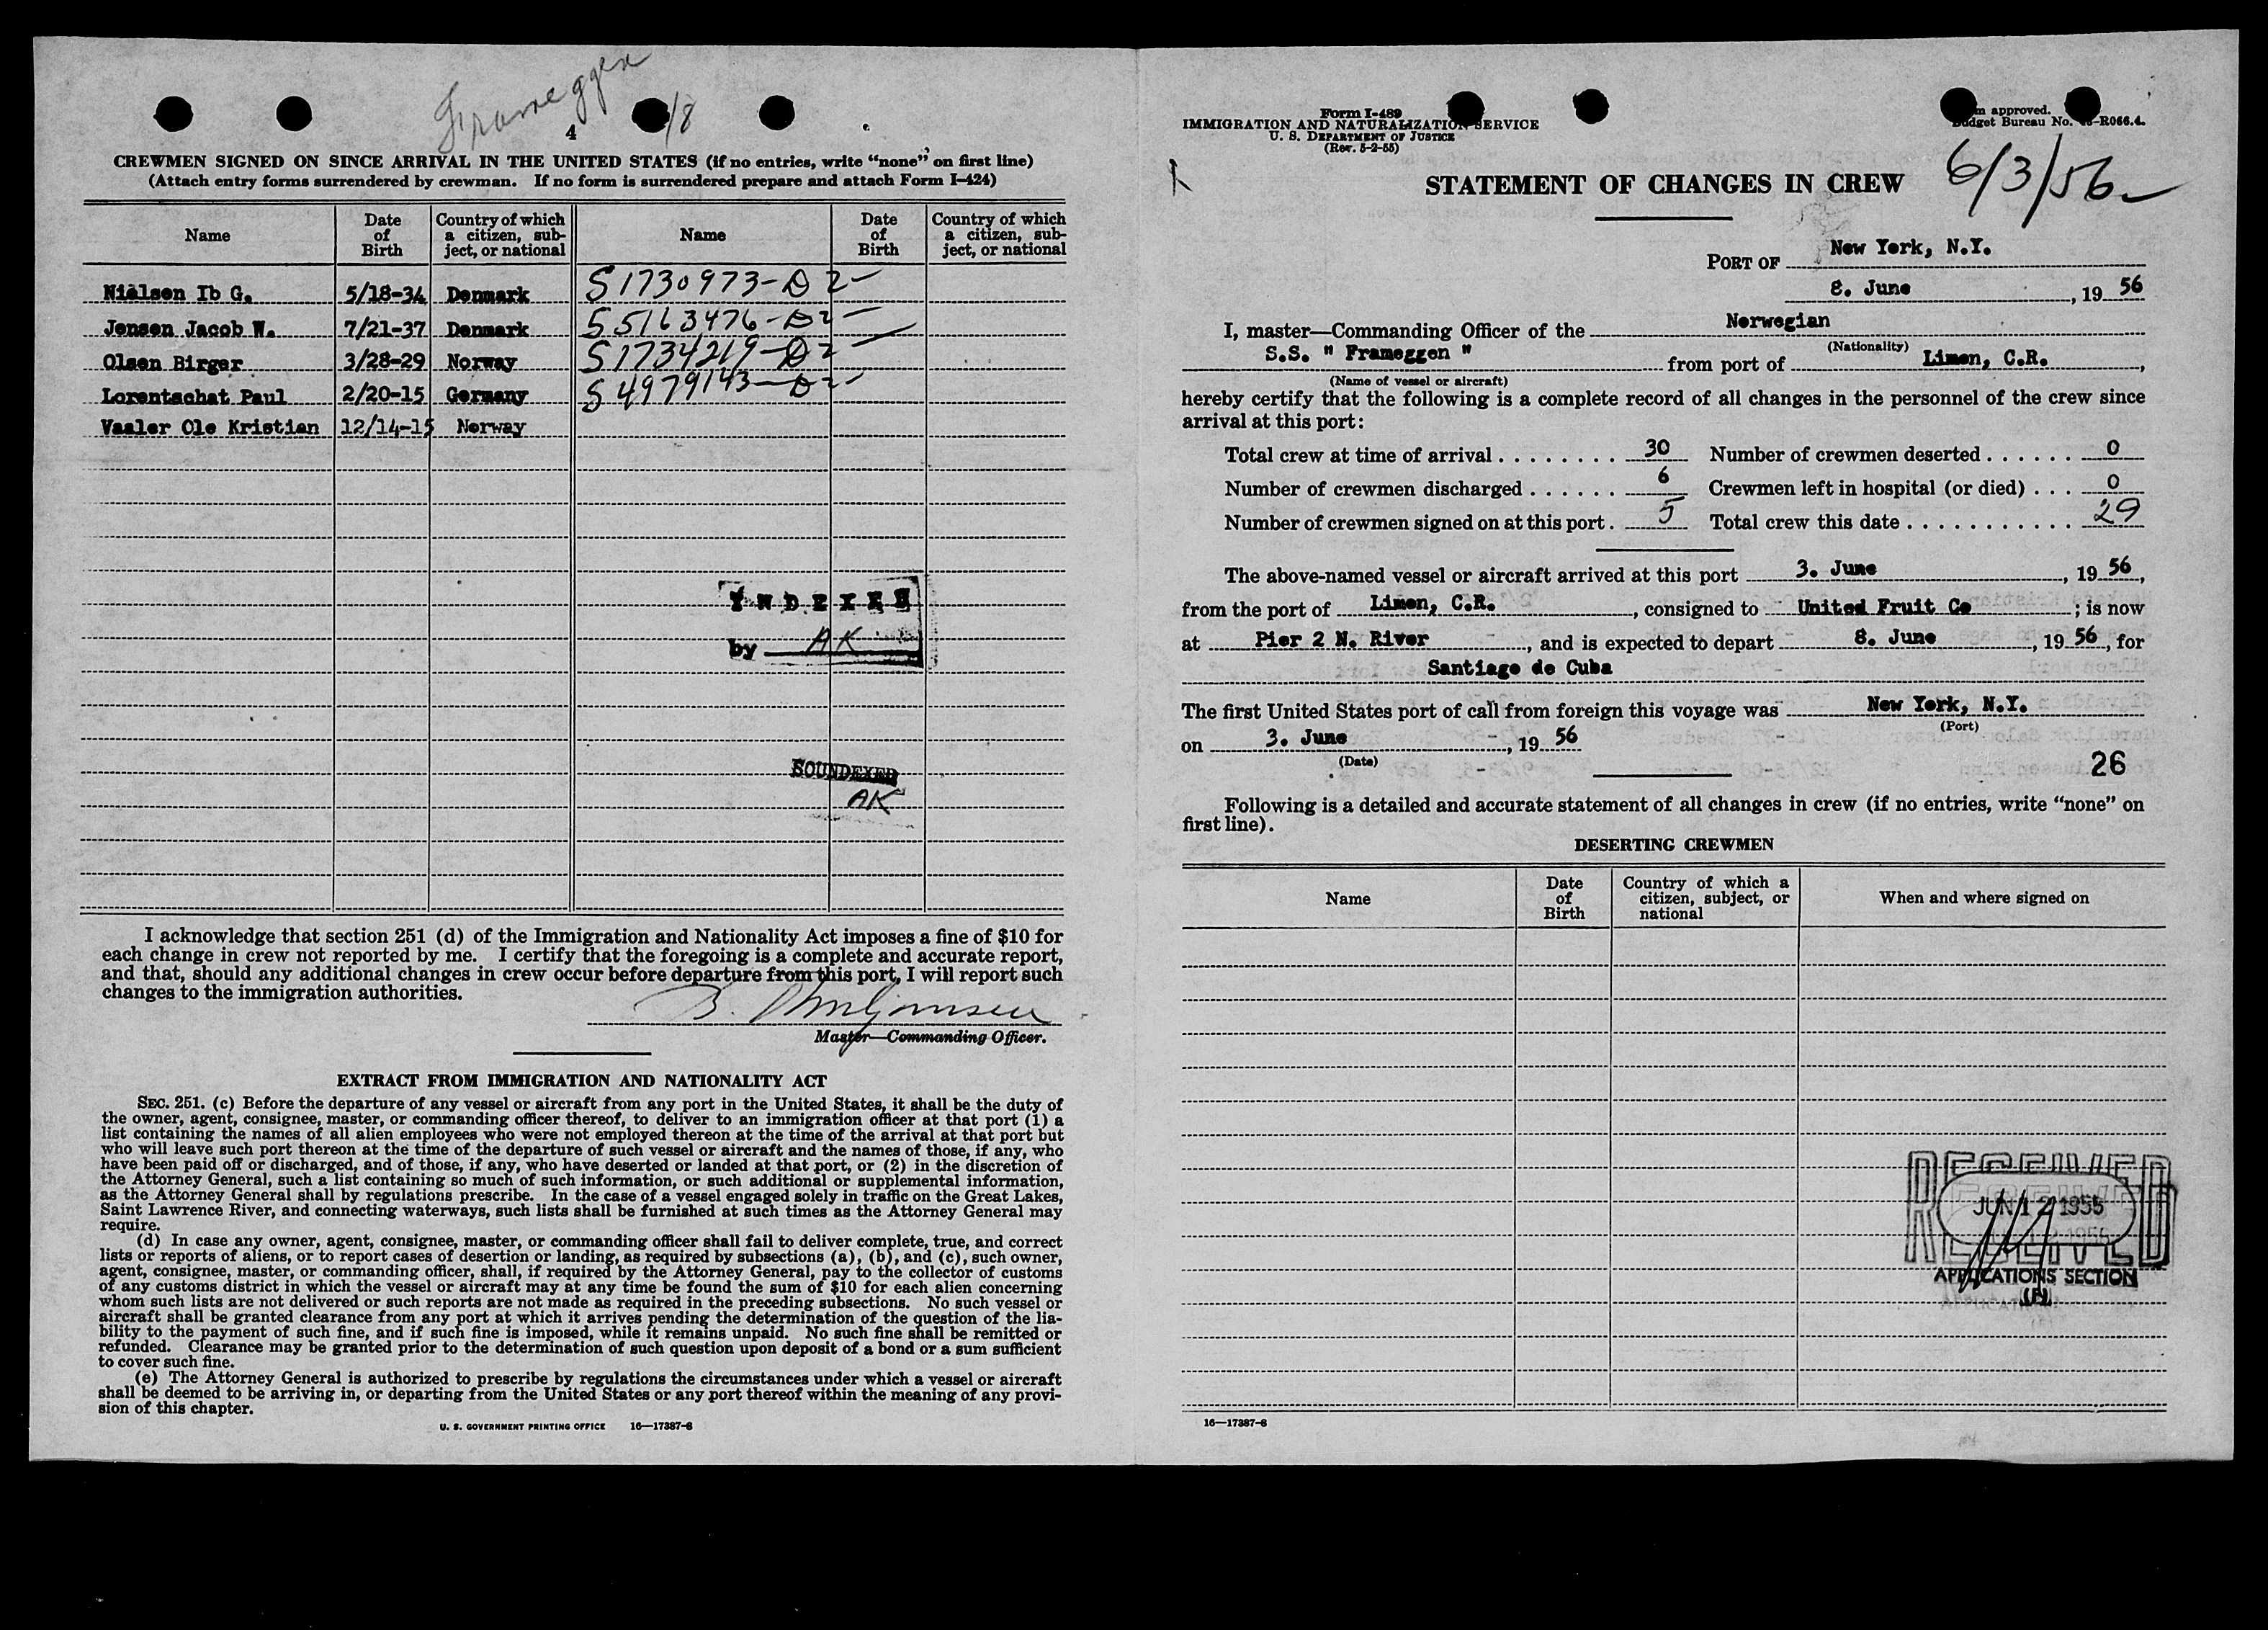 Frameggen
4
/8
CREWMEN SIGNED ON SINCE ARRIVAL IN THE UNITED STATES (if no entries, write “none” on first line)
(Attach entry forms surrendered by crewman. If no form is surrendered prepare and attach Form I–424)
Name | Date of Birth | Country of which a citizen, subject, or national | Name | Date of Birth | Country of which a citizen, subject, or national
Nielsen Ib G. 5/18-34 Denmark S1730973-D2-
Jensen Jacob W. 7/21-37 Denmark S5163476-D2-
Olsen Birger 3/28-29 Norway S1734219-D2-
Lorentschat Paul 2/20-15 Germany S4979143-D2-
Vaaler Ole Kristian 12/14-15 Norway
INDEXED
by AK
SOUNDEXED
AK
I acknowledge that section 251 (d) of the Immigration and Nationality Act imposes a fine of $10 for
each change in crew not reported by me. I certify that the foregoing is a complete and accurate report,
and that, should any additional changes in crew occur before departure from this port, I will report such
changes to the immigration authorities.
Master—Commanding Officer.
EXTRACT FROM IMMIGRATION AND NATIONALITY ACT
SEC. 251. (c) Before the departure of any vessel or aircraft from any port in the United States, it shall be the duty of
the owner, agent, consignee, master, or commanding officer thereof, to deliver to an immigration officer at that port (1) a
list containing the names of all alien employees who were not employed thereon at the time of the arrival at that port but
who will leave such port thereon at the time of the departure of such vessel or aircraft and the names of those, if any, who
have been paid off or discharged, and of those, if any, who have deserted or landed at that port, or (2) in the discretion of
the Attorney General, such a list containing so much of such information, or such additional or supplemental information,
as the Attorney General shall by regulations prescribe. In the case of a vessel engaged solely in traffic on the Great Lakes,
Saint Lawrence River, and connecting waterways, such lists shall be furnished at such times as the Attorney General may
require.
(d) In case any owner, agent, consignee, master, or commanding officer shall fail to deliver complete, true, and correct
lists or reports of aliens, or to report cases of desertion or landing, as required by subsections (a), (b), and (c), such owner,
agent, consignee, master, or commanding officer, shall, if required by the Attorney General, pay to the collector of customs
of any customs district in which the vessel or aircraft may at any time be found the sum of $10 for each alien concerning
whom such lists are not delivered or such reports are not made as required in the preceding subsections. No such vessel or
aircraft shall be granted clearance from any port at which it arrives pending the determination of the question of the lia-
bility to the payment of such fine, and if such fine is imposed, while it remains unpaid. No such fine shall be remitted or
refunded. Clearance may be granted prior to the determination of such question upon deposit of a bond or a sum sufficient
to cover such fine.
(e) The Attorney General is authorized to prescribe by regulations the circumstances under which a vessel or aircraft
shall be deemed to be arriving in, or departing from the United States or any port thereof within the meaning of any provi-
sion of this chapter.
U. S. GOVERNMENT PRINTING OFFICE 16—17387-6
Form I-489
IMMIGRATION AND NATURALIZATION SERVICE
U. S. DEPARTMENT OF JUSTICE
(Rev. 5-2-55)
approved.
Budget Bureau No. -R066.4.
6/3/56
STATEMENT OF CHANGES IN CREW
PORT OF New York, N.Y.
8. June, 19 56
I, master—Commanding Officer of the Norwegian
(Nationality)
S.S. " Frameggen " from port of Limon, C.R.,
(Name of vessel or aircraft)
hereby certify that the following is a complete record of all changes in the personnel of the crew since
arrival at this port:
Total crew at time of arrival . . . . . . . . 30 Number of crewmen deserted . . . . . . 0
Number of crewmen discharged . . . . . . 6 Crewmen left in hospital (or died) . . . 0
Number of crewmen signed on at this port . 5 Total crew this date . . . . . . . . . . . . 29
The above-named vessel or aircraft arrived at this port 3. June, 19 56,
from the port of Limon, C.R., consigned to United Fruit Co; is now
at Pier 2 N. River, and is expected to depart 8. June, 19 56, for
Santiago de Cuba
The first United States port of call from foreign this voyage was New York, N.Y.
(Port)
on 3. June, 19 56
(Date)
26
Following is a detailed and accurate statement of all changes in crew (if no entries, write “none” on
first line).
DESERTING CREWMEN
Name | Date of Birth | Country of which a citizen, subject, or national | When and where signed on
RECEIVED
JUN 12 1955
APPLICATIONS SECTION
16—17387-6